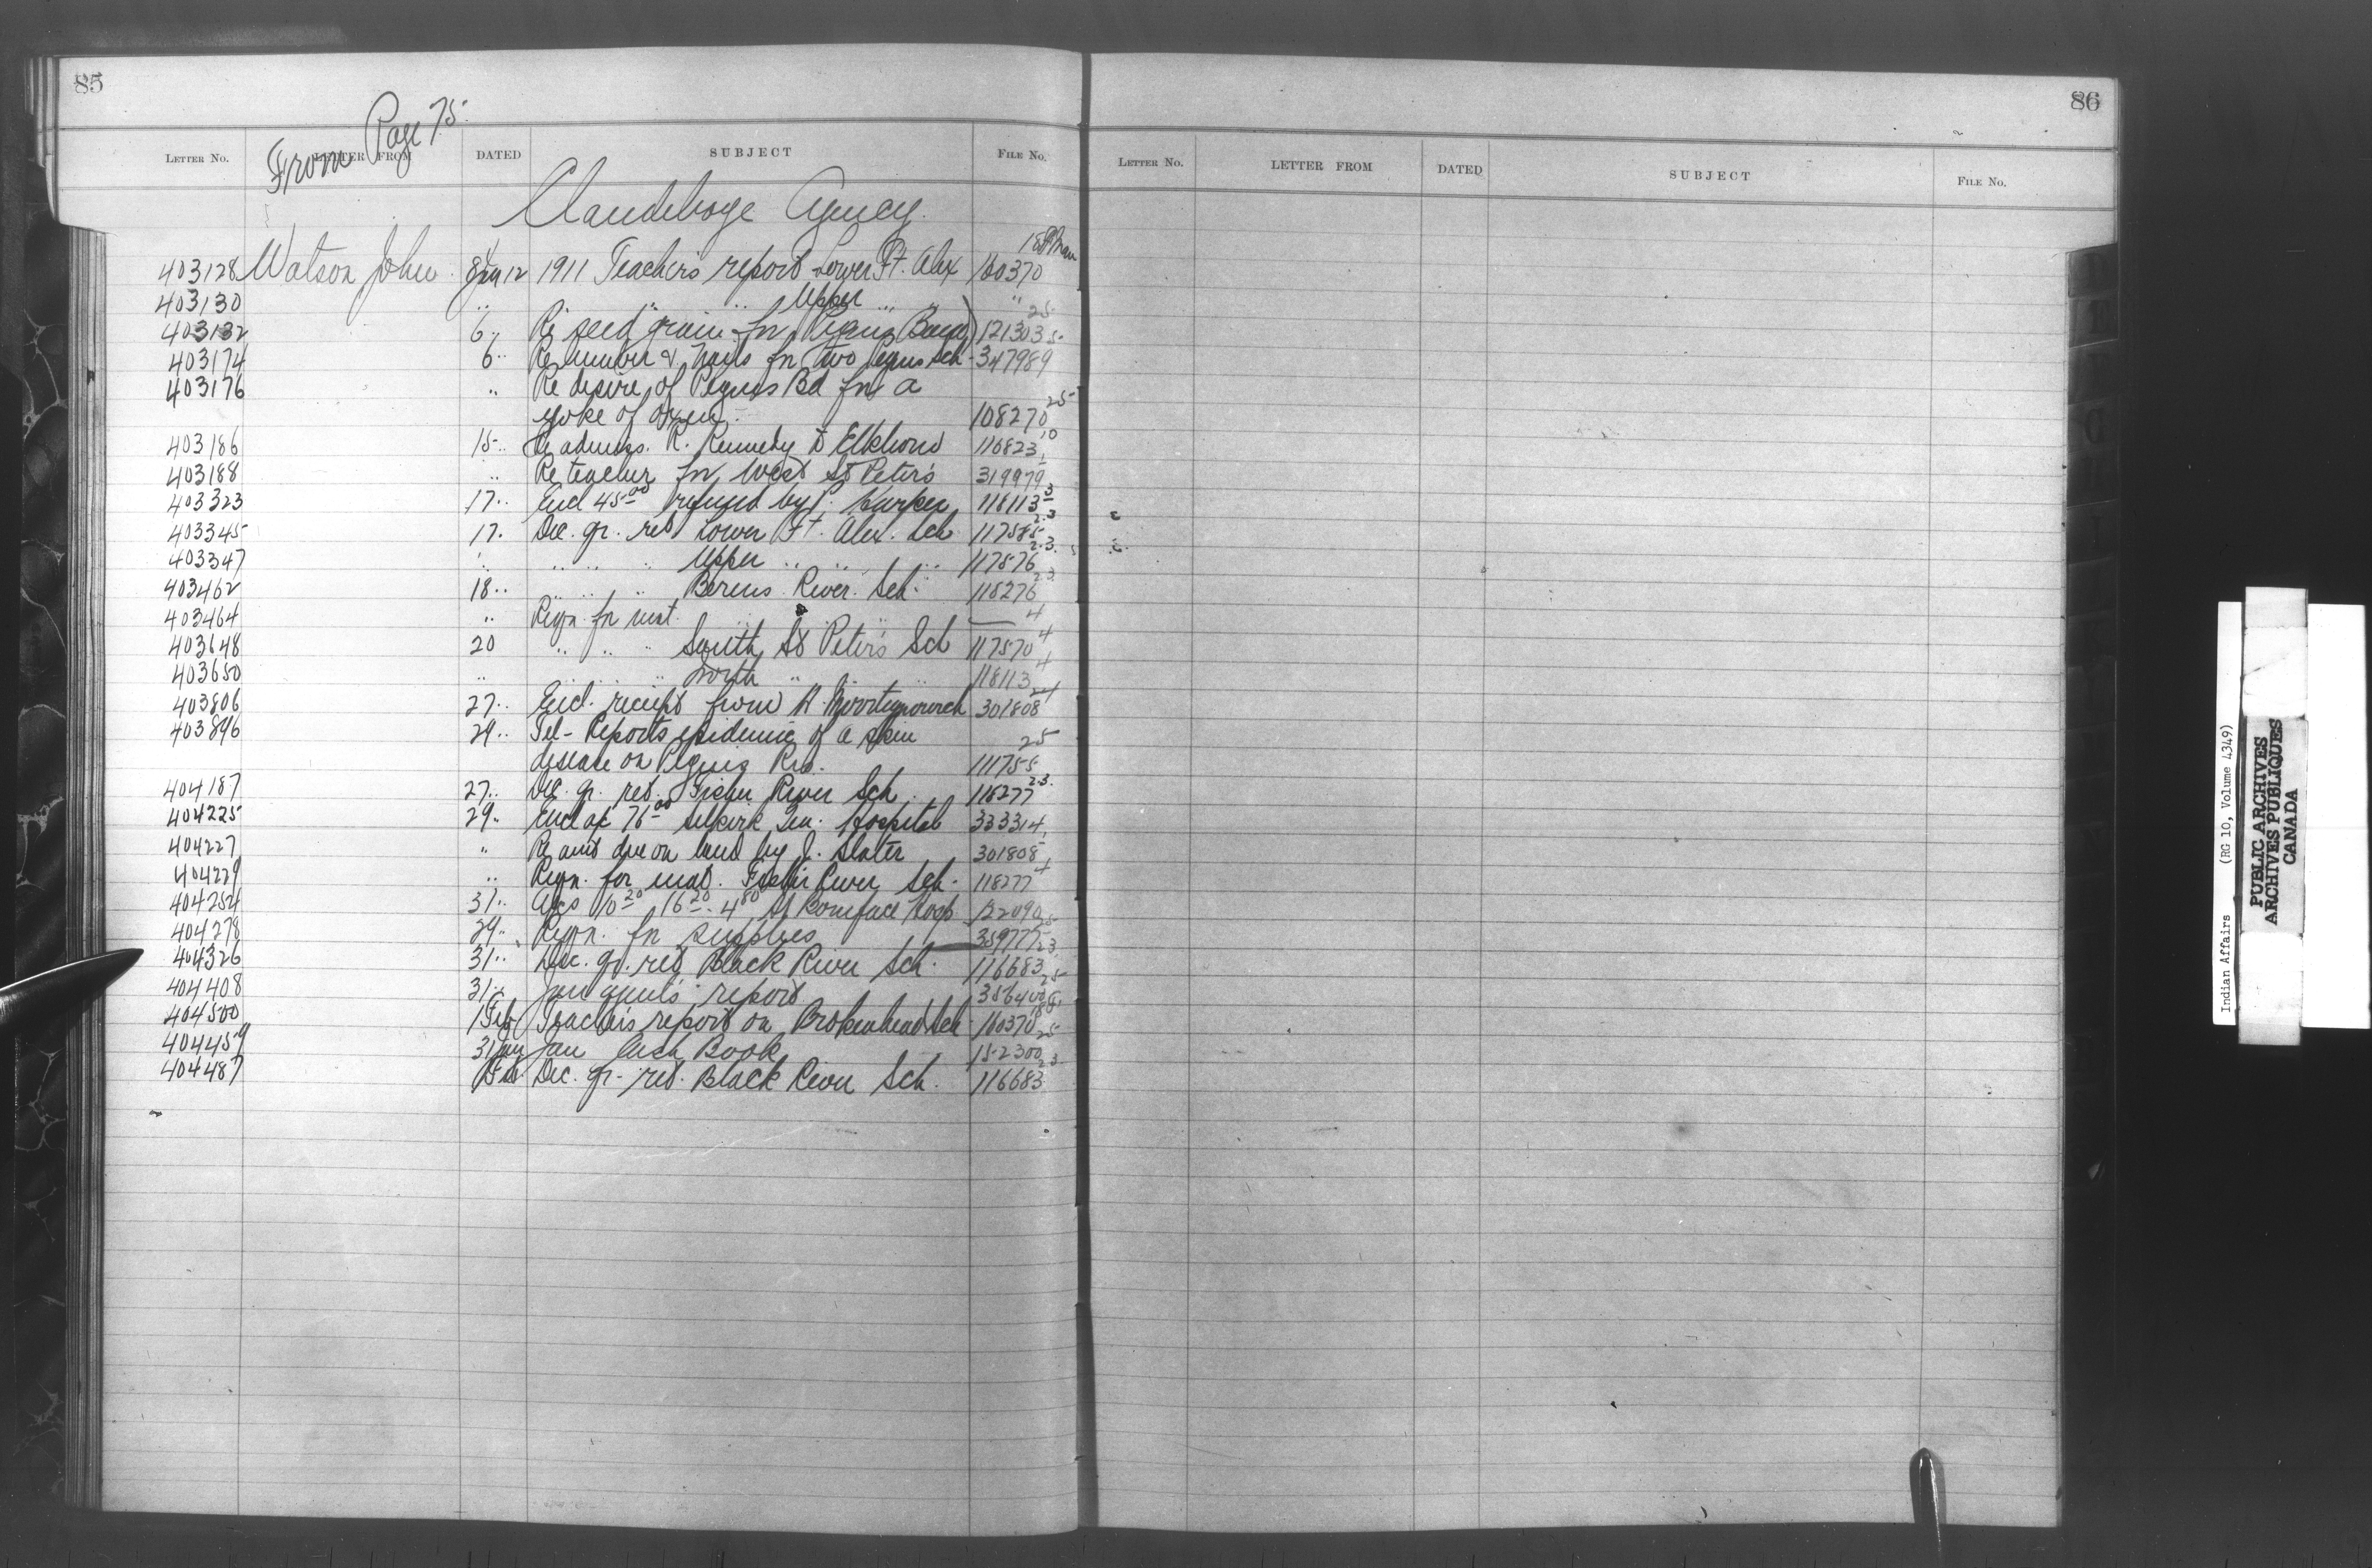 85
From Page 75.
LETTER NO. LETTER FROM DATED SUBJECT FILE NO.
Clandeboye Agency.
403128 Watson John. 8 Jan 12 1911 Teacher's report Lower Ft. Alex 160370
403130 " " " Upper " "
403132 6 " Re seed grain for Peguis Band 121303 25
403174 6 " Re lumber & nails for two Peguis Sch. 347989
403176 " Re desire of Peguis Bd for a
yoke of oxen. 108270 25
403186 15 " Re admiss. R. Kennedy to Elkhorn 116823 10
403188 " Re teacher for West St Peter's 319979
403323 17 " Encl 45.00 refund by P. Harper 118113 3
403345 17. Dec. qr. ret Lower Ft. Alex. Sch 117585 23
403347 " " " " Upper " " " 117576 23
403462 18 " " " " Berens River Sch. 118276 23
403464 " Reqn. for mat. " " " — 4
403648 20 " " " South St Peter's Sch 117570 4
403650 " " " " North " " " 118113 4
403806 27 " Encl. receipt from H. 301808
403896 29 " Tel - Reports epidemic of a skin
disease on Peguis Res. 111755 25
404187 27 " Dec. qr. ret. Fisher River Sch. 118277 23
404225 29 " Encl ac 76.00 Selkirk Gen. Hospital 333314
404227 " Re amt due on land by J. Slater 301808
404229 " Reqn. for mat. Fisher River Sch. 118277 4
404254 31 " Acs 10.20 16.20 4.80 St Boniface Hosp 122090
404278 29 " Reqn. for supplies 359777 25
404326 31 " Dec. qr. ret Black River Sch. 116683 23
404408 31 " Jan agent's report 25
404500 1 Feb Teacher's report on Brokenhead Sch 160370
404459 31 Jan Jan Cash Book 152300 25
404487 1 Feb Dec. qr. ret. Black River Sch. 116683 23
86
LETTER NO. LETTER FROM DATED SUBJECT FILE NO.
Indian Affairs (RG 10, Volume 4349)
PUBLIC ARCHIVES
ARCHIVES PUBLIQUES
CANADA